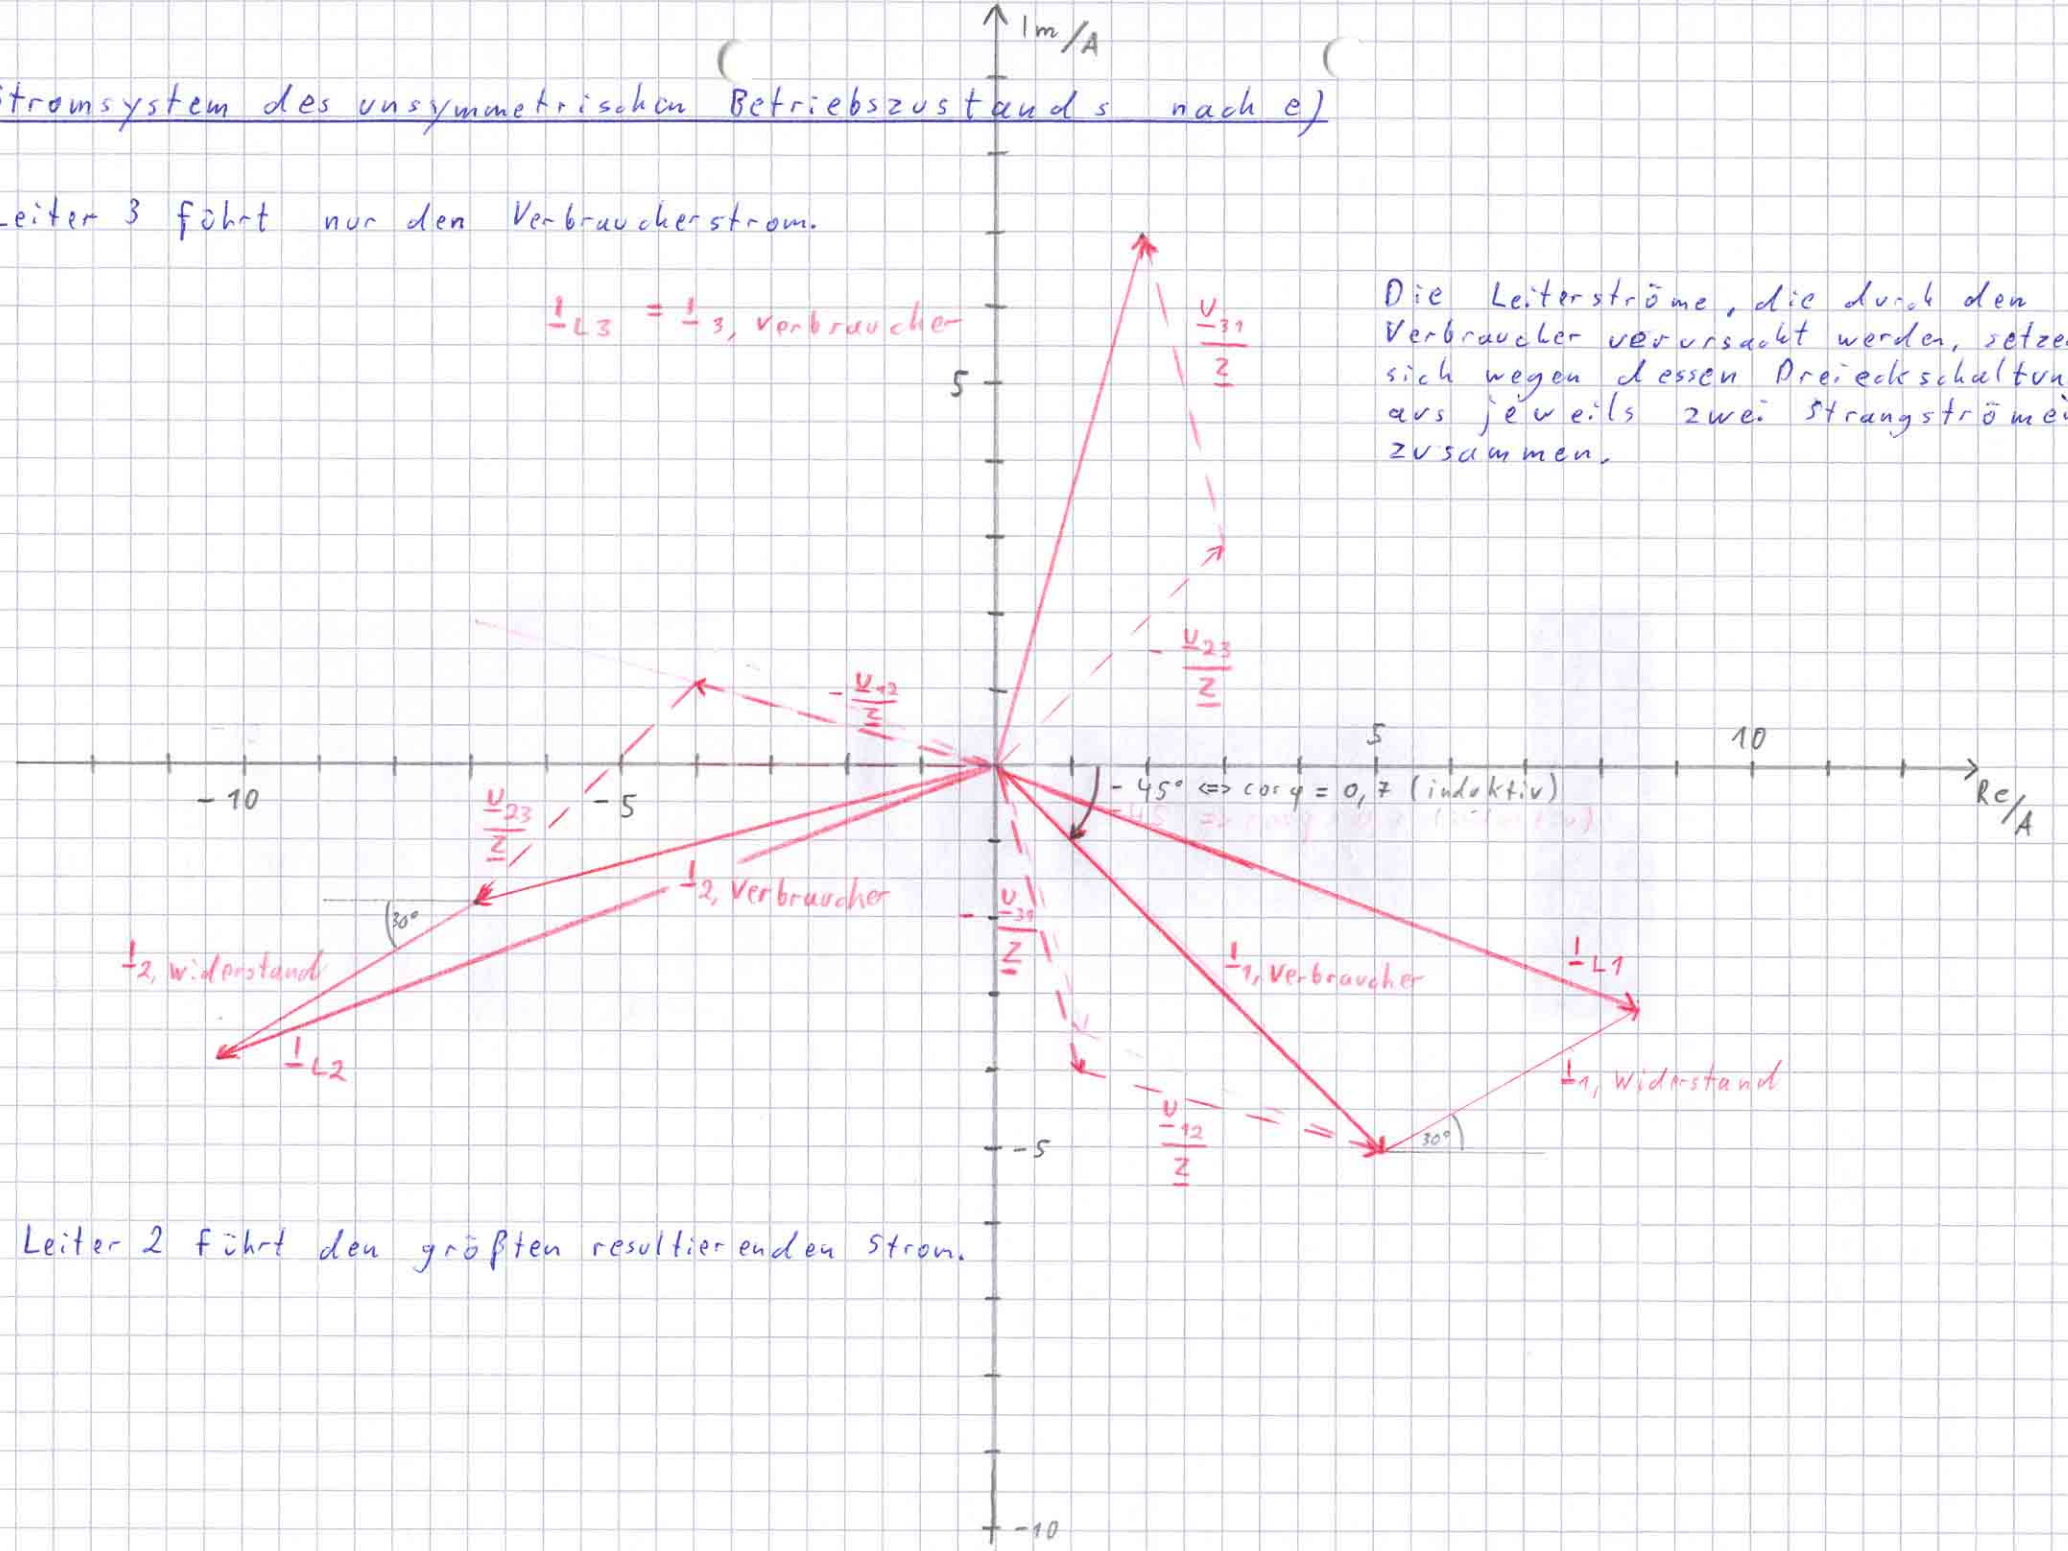 Im/A
tromsystem des unsymmetrischen Betriebszustands nach e)
Leiter 3 führt nur den Verbraucherstrom.
I_L3 = I_3, Verbraucher
U_31
Z
Die Leiterströme, die durch den
Verbraucher verursacht werden, setze
sich wegen dessen Dreieckschaltun
aus jeweils zwei Strangströme
zusammen.
5
- U_23
Z
- U_12
Z
5
10
-10
-5
- 45° <=> cos φ = 0,7 (induktiv)
Re/A
U_23
Z
I_2, Verbraucher
30°
- U_31
Z
I_2, Widerstand
I_1, Verbraucher
I_L1
I_L2
I_1, Widerstand
U_12
Z
30°
-5
Leiter 2 führt den größten resultierenden Strom.
-10